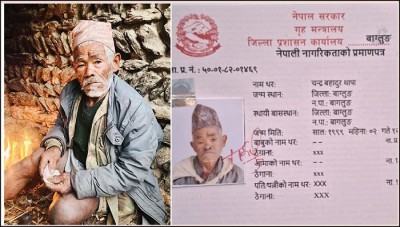 नेपाल सरकार
गृह मन्त्रालय
जिल्ला प्रशासन कार्यालय, बाग्लुङ
नेपाली नागरिकताको प्रमाणपत्र
ना. प्र. नं.: ५०-०१-८२-०१४६९
नाम थर: चन्द्र बहादुर थापा
जन्म स्थान: जिल्ला: बाग्लुङ
न.पा.: बाग्लुङ
स्थायी बासस्थान: जिल्ला: बाग्लुङ
न.पा.: बाग्लुङ
जन्म मिति: साल: १९९९ महिना: ०२ गते
बाबुको नाम थर: --
ठेगाना: xxx
आमाको नाम थर: --
ठेगाना: xxx
पति/पत्नीको नाम थर: XXX
ठेगाना: XXX